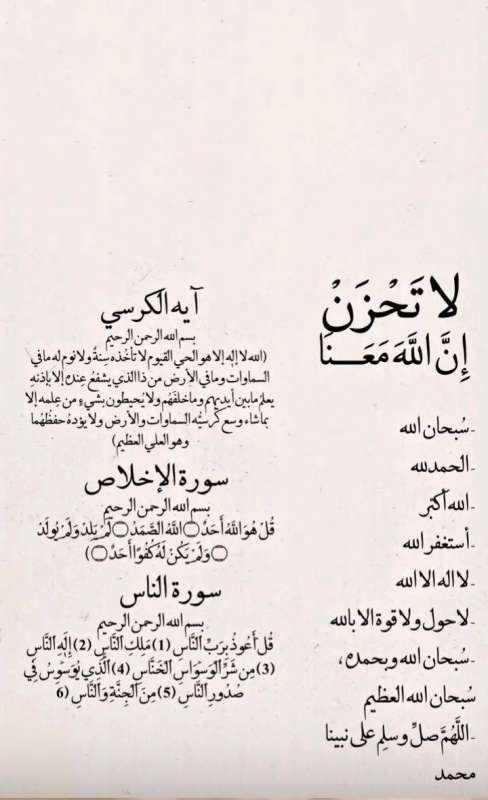 لا تَحْزَنْ
إِنَّ اللَّهَ مَعَنَا
-سُبحان الله
-الحمدلله
-الله أكبر
-أستغفر الله
-لا اله الا الله
-لاحول ولا قوة الا بالله
-سبحان الله وبحمده،
سُبحان الله العظيم
-اللَّهُمَّ صلِّ وسلِم على نبينا
محمد
آيه الكرسي
بسم الله الرحمن الرحيم
(الله لا إله إلا هو الحي القيوم لا تأخذه سِنةٌ ولا نوم له مافي
السماوات ومافي الأرض من ذا الذي يشفعُ عِنده إلا بإذنهِ
يعلمُ مابين أيديهم وما خلفَهُم ولا يُحيطون بشيءٍ من عِلمه إلا
بماشاء وسع كُرسيُّه السماوات والأرض ولا يؤدهُ حفظُهُما
وهو العلي العظيم)
سورة الإخلاص
بسم الله الرحمن الرحيم
قُلْ هُوَ اللَّهُ أَحَدٌ۝ اللَّهُ الصَّمَدُ۝ لَمْ يَلِدْ وَلَمْ يُولَدْ
۝ وَلَمْ يَكُنْ لَهُ كُفُوًا أَحَدٌ۝)
سورة الناس
بسم الله الرحمن الرحيم
قُلْ أَعُوذُ بِرَبِّ النَّاسِ (1) مَلِكِ النَّاسِ (2) إِلَهِ النَّاسِ
(3) مِن شَرِّ الْوَسْوَاسِ الْخَنَّاسِ (4) الَّذِي يُوَسْوِسُ فِي
صُدُورِ النَّاسِ (5) مِنَ الْجِنَّةِ وَالنَّاسِ (6